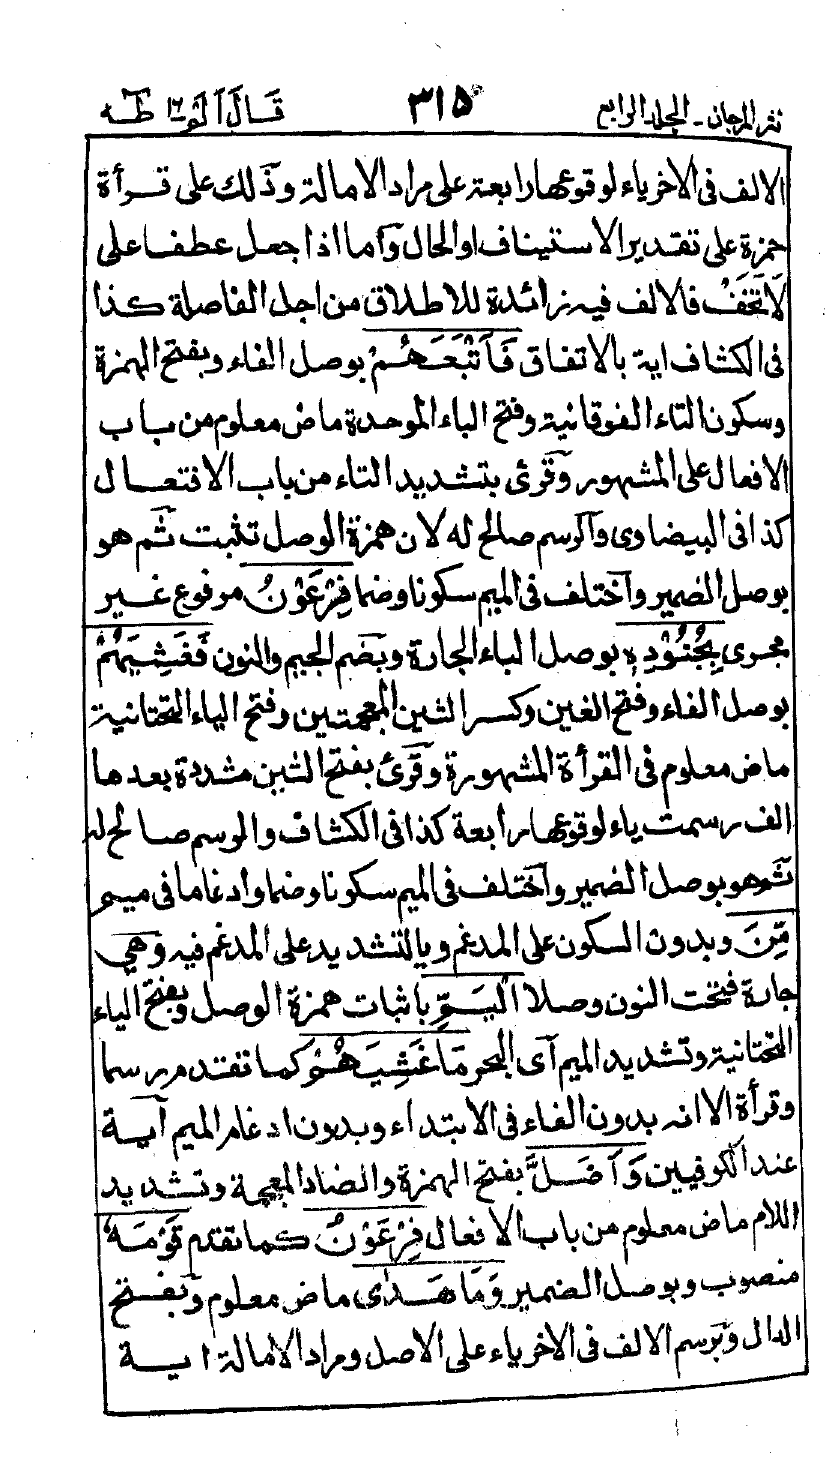 نثر المرجان - المجلد الرابع ٣١٥ قَالَ اَلَمْ ١٦ طٰهٰ
الالف فى الاخرياء لوقوعها رابعة على مراد الامالة وذلك على قرأة
حمزة على تقدير الاستيناف او الحال وآما اذا جعل عطفا على
لَاتَخَفْ فالالف فيه زائدة للاطلاق من اجل الفاصلة كذا
فى الكشاف اية بالاتفاق فَاَتْبَعَهُمْ بوصل الفاء وبفتح الهمزة
وسكون التاء الفوقانية وفتح الباء الموحدة ماض معلوم من باب
الافعال على المشهور وقرئ بتشديد التاء من باب الافتعال
كذا فى البيضاوى والرسم صالح له لان همزة الوصل تثبت ثم هو
بوصل الضمير وآختلف فى الميم سكونا وضما فِرْعَوْنُ مرفوع غير
مجرى بِجُنُوْدِهٖ بوصل الباء الجارة وبضم الجيم والنون فَغَشِيَهُمْ
بوصل الفاء وفتح الغين وكسر الشين المعجمتين وفتح الياء التحتانية
ماض معلوم فى القرأة المشهورة وقرئ بفتح الشين مشددة بعدها
الف رسمت ياء لوقوعها رابعة كذا فى الكشاف والرسم صالح له
ثم هو بوصل الضمير وآختلف فى الميم سكونا وضما وادغاما فى ميم
مِّنَ وبدون السكون على المدغم وبالتشديد على المدغم فيه وهي
جارة فتحت النون وصلا الْيَمِّ باثبات همزة الوصل وبفتح الياء
التحتانية وتشديد الميم آى البحر مَا غَشِيَهُمْ كما تقدم رسما
وقرأة الا انه بدون الفاء فى الابتداء وبدون ادغام الميم آية
عند الكوفيين وَاَضَلَّ بفتح الهمزة والضاد المعجمة وتشديد
اللام ماض معلوم من باب الافعال فِرْعَوْنُ كما تقدم قَوْمَهٗ
منصوب وبوصل الضمير وَمَا هَدٰى ماض معلوم وبفتح
الدال وبرسم الالف فى الاخرياء على الاصل ومراد الامالة اية